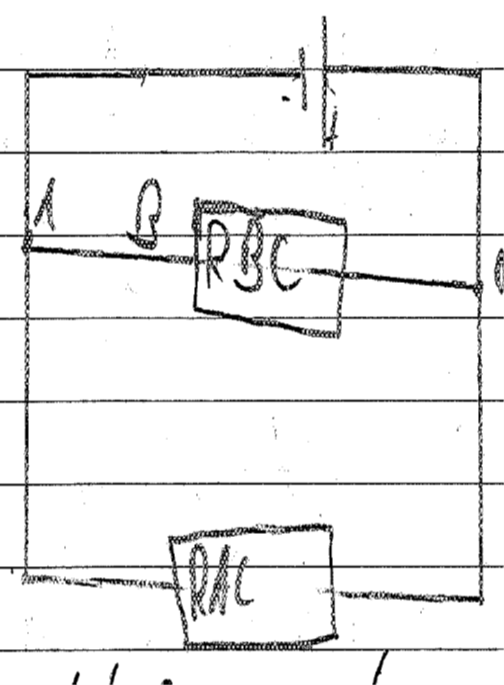 - +
A B
RBC
RAC